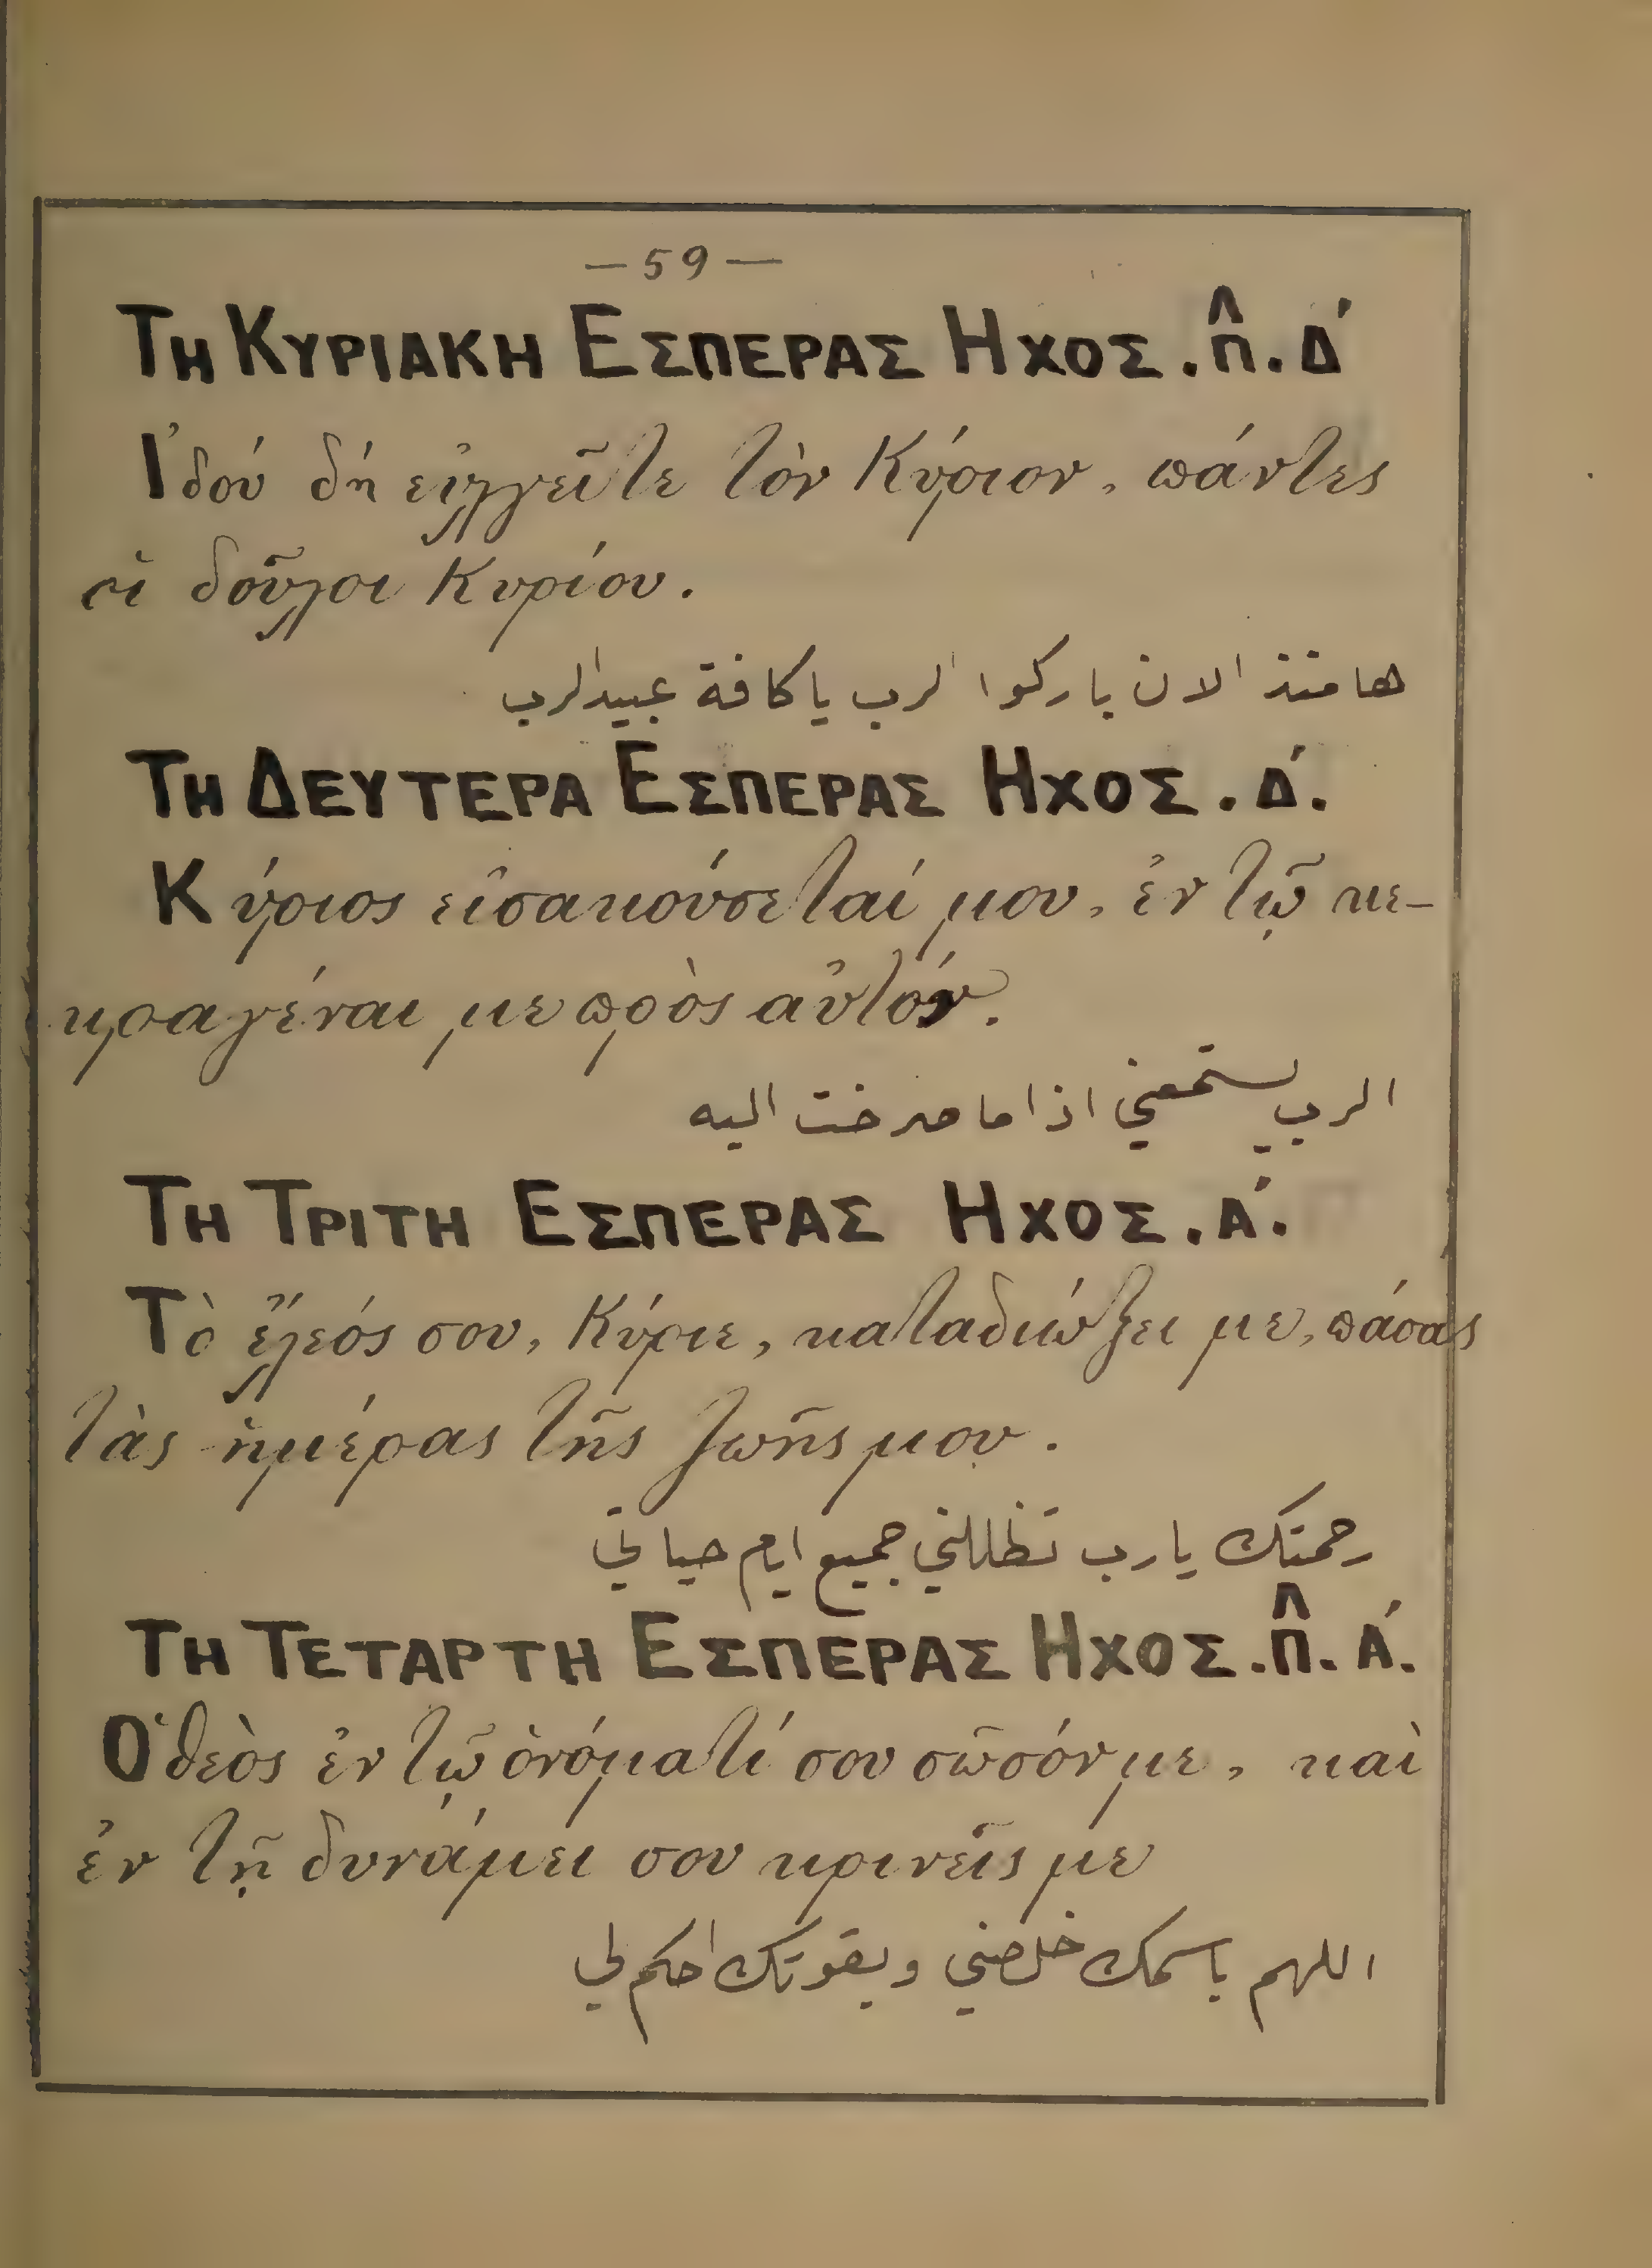 — 59 —
ΤΗ ΚΥΡΙΑΚΗ ΕΣΠΕΡΑΣ ΗΧΟΣ . Π̂ . Δ΄
Ἰδού δή εὐλγεῖτε τὸν Κύριον, πάντες
οἱ δοῦλοι Κυρίου.
ها منذ الان باركوا الرب يا كافة عبيد الرب
ΤΗ ΔΕΥΤΕΡΑ ΕΣΠΕΡΑΣ ΗΧΟΣ . Δ΄.
Κύριος εἰσακούσεταί μου, ἐν τῷ κε-
κραγέναι με πρὸς αὐτόν.
الرب يستمعني اذا ما صرخت اليه
ΤΗ ΤΡΙΤΗ ΕΣΠΕΡΑΣ ΗΧΟΣ . Α΄.
Τὸ ἔλεός σου, Κύριε, καταδιώξει με, πάσας
τὰς ἡμέρας τῆς ζωῆς μου.
رحمتك يا رب تظللني جميع ايام حياتي
ΤΗ ΤΕΤΑΡΤΗ ΕΣΠΕΡΑΣ ΗΧΟΣ . Π̂ . Α΄.
Ὁ θεὸς ἐν τῷ ὀνόματί σου σῶσόν με, καὶ
ἐν τῇ δυνάμει σου κρινεῖς με
اللهم باسمك خلصني وبقوتك احكم لي